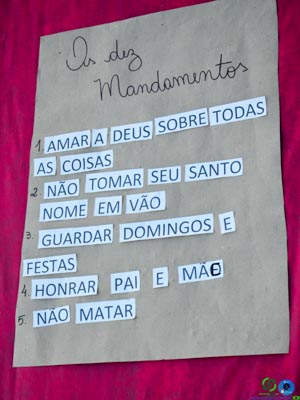 Os dez
Mandamentos
1. AMAR A DEUS SOBRE TODAS
AS COISAS
2. NÃO TOMAR SEU SANTO
NOME EM VÃO
3. GUARDAR DOMINGOS E
FESTAS
4. HONRAR PAI E MÃE
5. NÃO MATAR